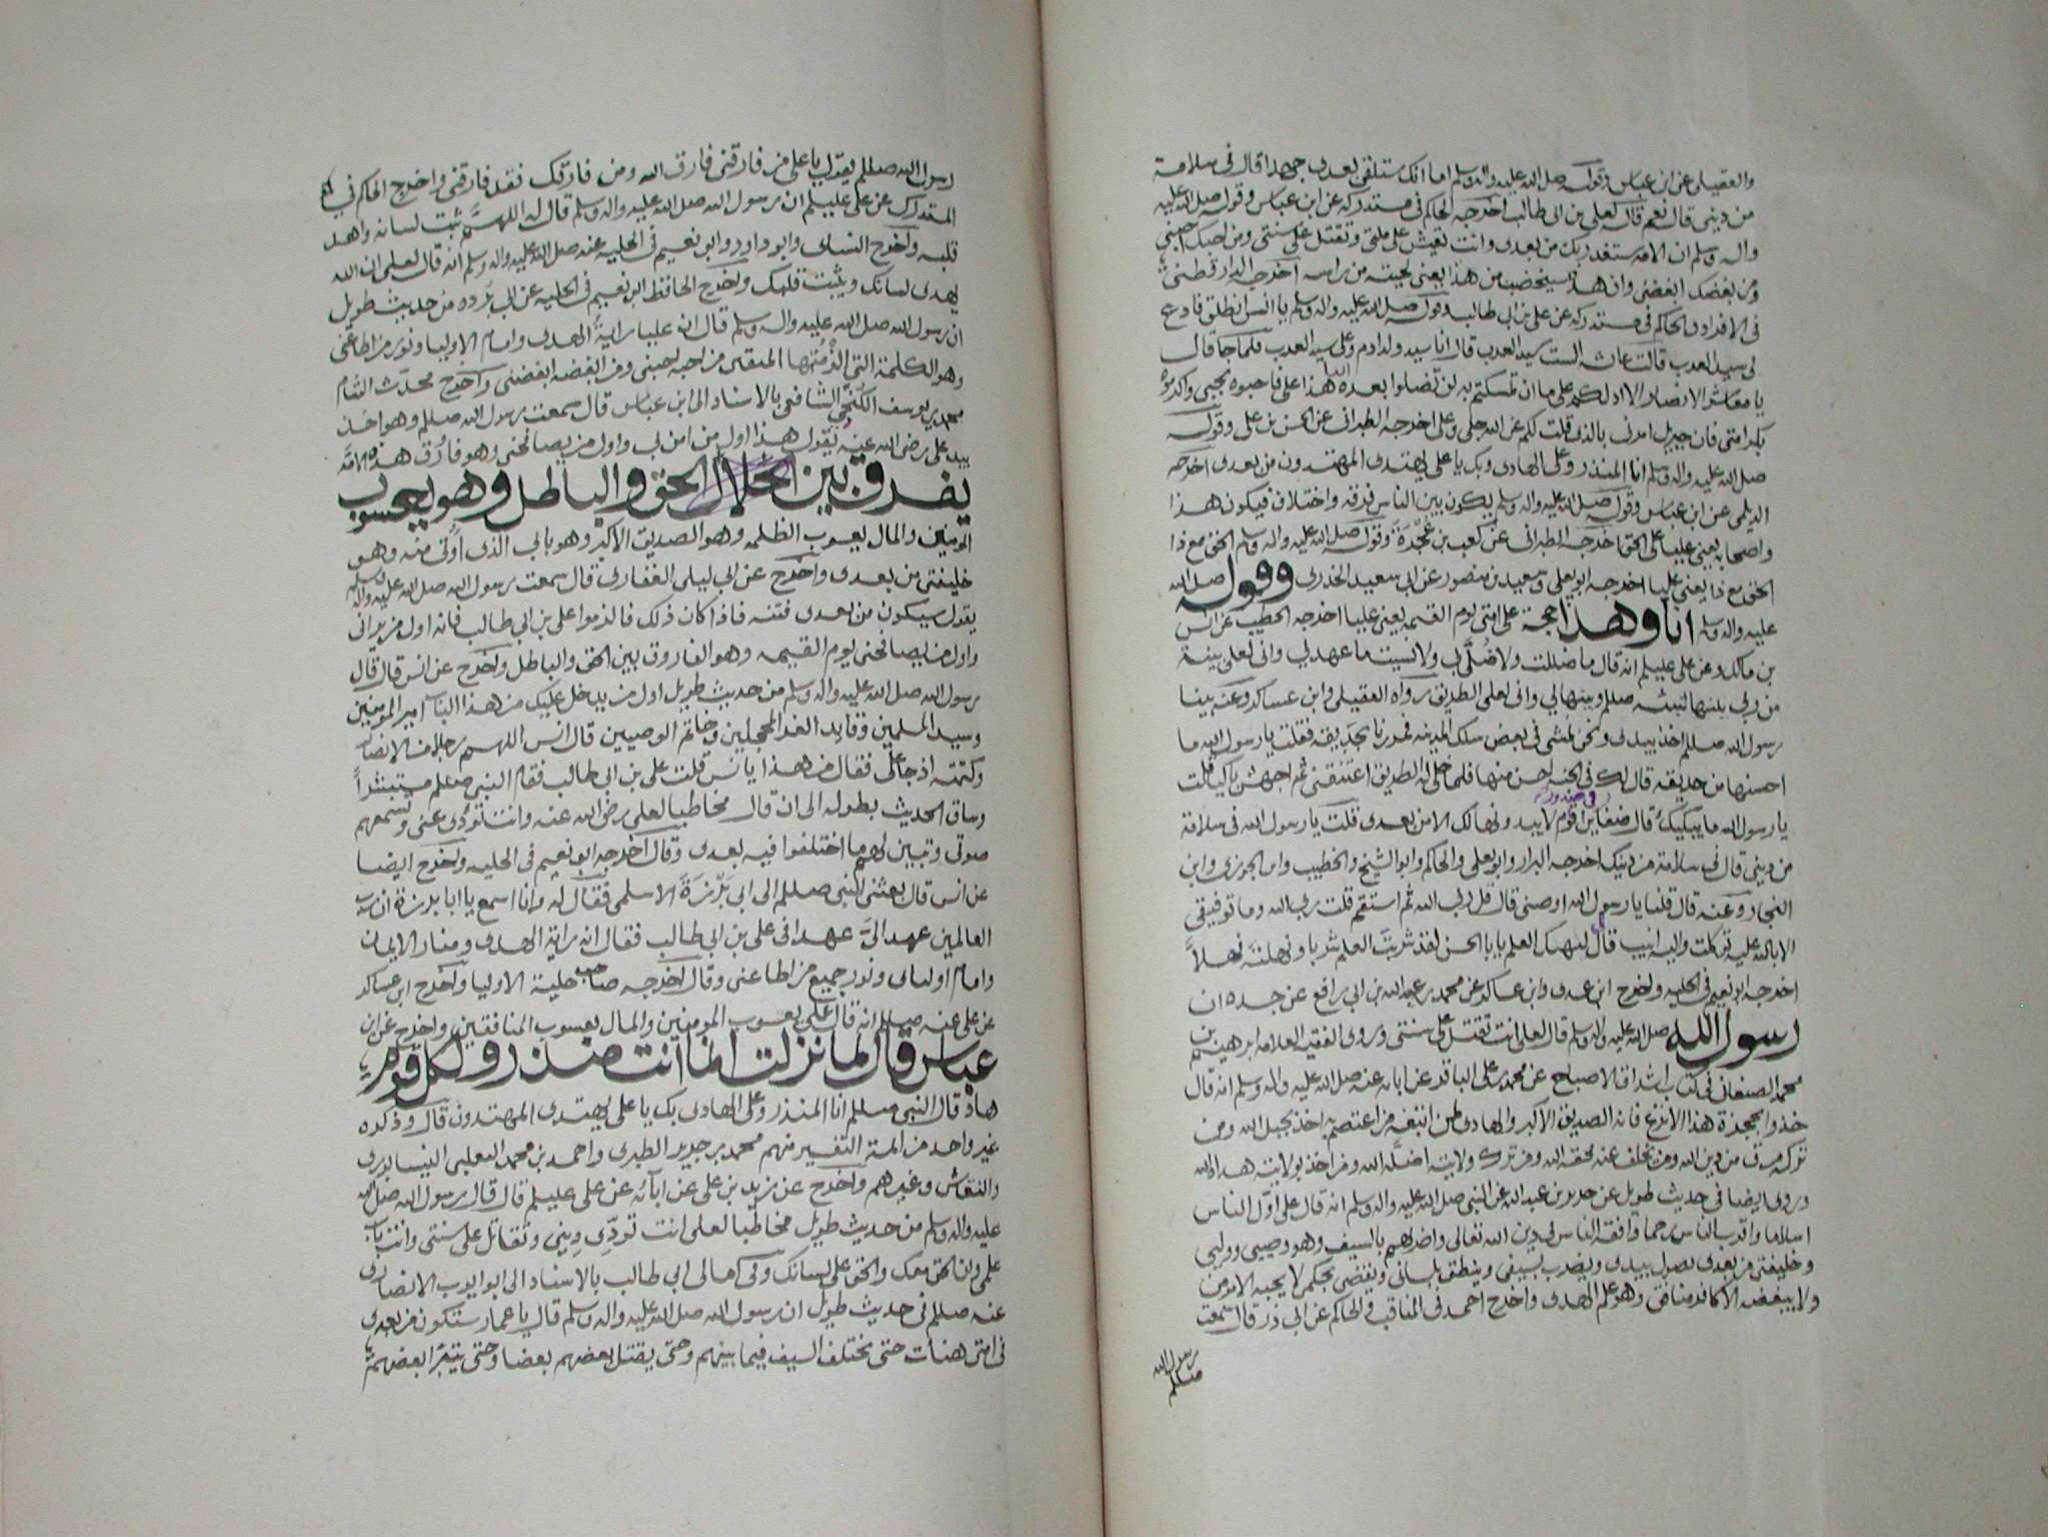 والعقيلي عن ابن عباس وقوله صل الله عليه واله وسلم اما انك ستلقى بعدى جهدا قال في سلامة
من ديني قال نعم قاله لعلي بن ابي طالب اخرجه الحاكم في مستدركه عن ابن عباس وقوله صل الله عليه
واله وسلم ان الامة ستغدر بك من بعدى وانت تعيش على ملتي وتقتل على سنتي ومن احبك احبني
ومن ابغضك ابغضني وان هذه سيخضب من هذا يعني لحيته من راسه اخرجه الدارقطني
في الافراد والحاكم في مستدركه عن علي بن ابي طالب وقوله صل الله عليه واله وسلم يا انس انطلق فادع
لي سيد العرب قالت عائشه الست سيد العرب قال انا سيد ولد ادم وعلى سيد العرب فلما جا قال
يا معاشر الانصار الا ادلكم على ما ان تمسكتم به لن تضلوا بعده ابدا هذا علي فاحبوه بحبي واكرموه
بكرامتي فان جبريل امرني بالذي قلت لكم عن الله جل وعلى اخرجه الطبراني عن الحسن بن علي وقوله
صل الله عليه واله وسلم انا المنذر وعلى الهادى وبك يا علي يهتدى المهتدون من بعدى اخرجه
الديلمي عن ابن عباس وقوله صل الله عليه واله وسلم يكون بين الناس فرقه واختلاف فيكون هذا
واصحابه يعني عليا على الحق اخرجه الطبراني عن كعب بن عجرة وقوله صل الله عليه واله وسلم الحق مع ذا
الحق مع ذا يعني عليا اخرجه ابو يعلى وسعيد بن منصور عن ابي سعيد الخدرى وقوله صل الله
عليه واله وسلم انا وهذا حجة على امتي يوم القيمه يعني عليا اخرجه الخطيب عن انس
بن مالك وعن علي عليلم انه قال ما ضللت ولا ضُلَّ بي ولا نسيت ما عهد لي واني لعلى بينة
من ربي بينها لنبيه صللم وبينها لي واني لعلى الطريق رواه العقيلي وابن عساكر وعنه بينا
رسول الله صللم اخذ بيدى ونحن نمشي في بعض سكك المدينه فمررنا بحديقه فقلت يارسول الله ما
احسنها من حديقه قال لك في الجنه احسن منها فلما خلى له الطريق اعتنقني ثم اجهش باكيا قلت
يا رسول الله ما يبكيك قال ضغاين في صدور اقوام لا يبدونها لك الا من بعدى قلت يا رسول الله في سلامة
من ديني قال في سلامة من دينك اخرجه البزار وابو يعلى والحاكم وابو الشيخ والخطيب وابن الجوزى وابن
النجار وعنه قال قلنا يا رسول الله اوصني قال قل ربي الله ثم استقم قلت ربي الله وما توفيقي
الا بالله عليه توكلت واليه انيب قال ليهنك العلم يا ابا الحسن لقد شربت العلم شربا ونهلته نهلاً
اخرجه ابو نعيم في الحليه واخرج ابن عدى وابن عساكر عن محمد بن عبيد الله بن ابي رافع عن جده ان
رسول الله صل الله عليه واله وسلم قال لعلي انت تقتل على سنتي وروى الفقيه العلامه ابرهيم بن
محمد الصنعاني في كتاب اشراق الاصباح عن محمد بن علي الباقر عن ابائه عنه صل الله عليه واله وسلم انه قال
خذوا بحجزة هذا الانزع فانه الصديق الاكبر والهادى لمن اتبعه من اعتصم به اخذ بحبل الله ومن
تركه مرق من دين الله ومن تخلف عنه محقه الله ومن ترك ولايته اضله الله ومن اخذ بولايته هداه الله
وروى ايضا في حديث طويل عن جابر بن عبدالله عن النبي صل الله عليه واله وسلم انه قال علي اوّل الناس
اسلاما واقرب الناس رحما وافقه الناس في دين الله تعالى واضربهم بالسيف وهو وصيي ووليي
وخليفتي من بعدى يصول بيدى ويضرب بسيفي وينطق بلساني ويقضي بحكمي لا يحبه الا مومن
ولا يبغضه الا كافر منافق وهو علم الهدى واخرج احمد في المناقب والحاكم عن ابي ذر قال سمعت
رسول الله
صللم
رسول الله صللم يقول يا علي من فارقني فارق الله ومن فارقك فقد فارقني واخرج الحاكم في
المستدرك عن علي عليلم ان رسول الله صل الله عليه واله وسلم قال له اللهم ثبت لسانه واهد
قلبه واخرج النساى وابو داود وابو نعيم في الحليه عنه صل الله عليه واله وسلم انه قال لعلي ان الله
يهدى لسانك ويثبت قلبك واخرج الحافظ ابو نعيم في الحليه عن ابي برده من حديث طويل
ان رسول الله صل الله عليه واله وسلم قال ان عليا راية الهدى وامام الاوليا ونور من اطاعني
وهو الكلمة التي الزمتها المتقين من احبه احبني ومن ابغضه ابغضني واخرج محدث الشام
محمد بن يوسف الكنجي الشافعي بالاسناد الى ابن عباس قال سمعت رسول الله صللم وهو اخذ
بيد علي رضي الله عنه يقول هذا اول من امن بي واول من يصافحني وهو فارُوق هذه الامة
يفرق بين الحق والباطل وهو يعسوب
المومنين والمال يعسوب الظلمه وهو الصديق الاكبر وهو بابي الذى اُوتى منه وهو
خليفتي من بعدى واخرج عن ابي ليلى الغفارى قال سمعت رسول الله صل الله عليه واله وسلم
يقول سيكون من بعدى فتنه فاذا كان ذلك فالزموا علي بن ابي طالب فانه اول من يراني
واول من يصافحني يوم القيمه وهو الفاروق بين الحق والباطل واخرج عن انس قال قال
رسول الله صل الله عليه واله وسلم من حديث طويل اول من يدخل عليك من هذا الباب امير المومنين
وسيد المسلمين وقايد الغر المحجلين وخاتم الوصيين قال انس اللهم رجلا من الانصار
وكتمته اذ جا علي فقال من هذا يا انس قلت علي بن ابي طالب فقام النبي صللم مستبشراً
وساق الحديث بطوله الى ان قال مخاطبا لعلي رضي الله عنه وانت تؤدى عني وتسمعهم
صوتي وتبين لهم ما اختلفوا فيه بعدى وقال اخرجه ابو نعيم في الحليه واخرج ايضا
عن انس قال بعثني النبي صللم الى ابي برزة الاسلمي فقال له وانا اسمع يا ابا برزة ان رب
العالمين عهد اليّ عهدا في علي بن ابي طالب فقال انه راية الهدى ومنار الايمان
وامام اولياى ونور جميع من اطاعني وقال اخرجه صاحب حلية الاوليا واخرج ابن عساكر
عن علي عنه صللم انه قال علي يعسوب المومنين والمال يعسوب المنافقين واخرج عن ابن
عباس قال لما نزلت انما انت منذر ولكل قوم
هاد قال النبي صللم انا المنذر وعلى الهادى بك يا علي يهتدى المهتدون قال وذكره
غير واحد من ائمة التفسير منهم محمد بن جرير الطبرى واحمد بن محمد الثعلبي النيسابورى
والنقاش وغيرهم واخرج عن زيد بن علي عن ابآئه عن علي عليلم قال قال رسول الله صل الله
عليه واله وسلم من حديث طويل مخاطبا لعلي انت تودّى ديني وتقاتل على سنتي وانت باب
علمي وان الحق معك والحق على لسانك وفي امالى ابي طالب بالاسناد الى ابو ايوب الانصارى
عنه صللم في حديث طويل ان رسول الله صل الله عليه واله وسلم قال يا عمار ستكون من بعدى
في امتي هنات حتى يختلف السيف فيما بينهم وحتى يقتل بعضهم بعضا وحتى يتبرأ بعضهم